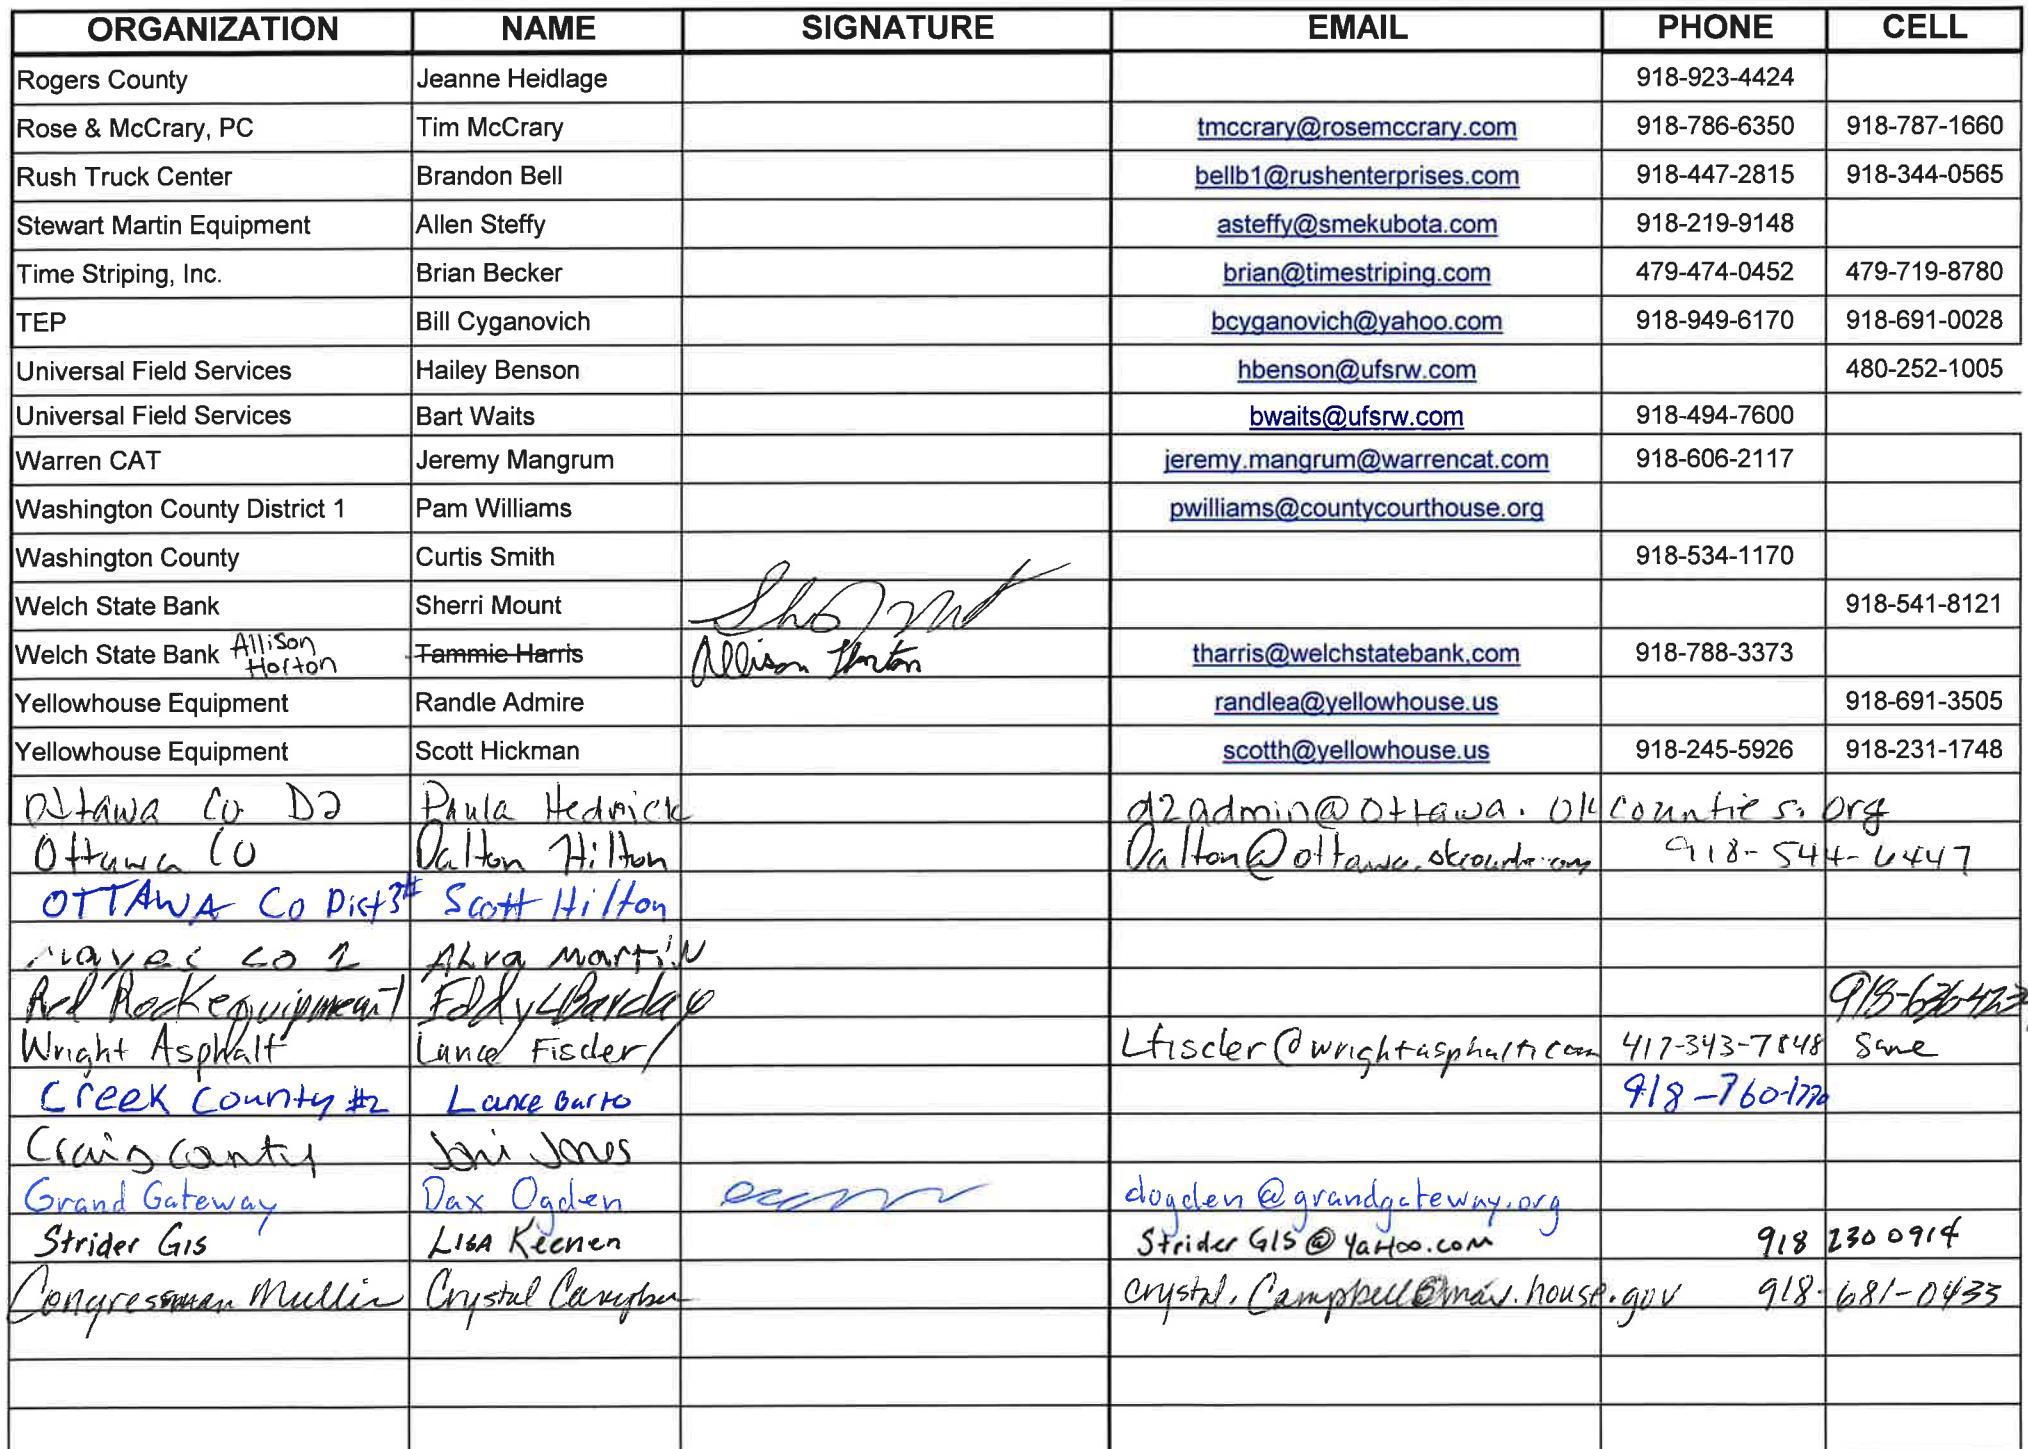 ORGANIZATION NAME SIGNATURE EMAIL PHONE CELL
Rogers County Jeanne Heidlage 918-923-4424
Rose & McCrary, PC Tim McCrary tmccrary@rosemccrary.com 918-786-6350 918-787-1660
Rush Truck Center Brandon Bell bellb1@rushenterprises.com 918-447-2815 918-344-0565
Stewart Martin Equipment Allen Steffy asteffy@smekubota.com 918-219-9148
Time Striping, Inc. Brian Becker brian@timestriping.com 479-474-0452 479-719-8780
TEP Bill Cyganovich bcyganovich@yahoo.com 918-949-6170 918-691-0028
Universal Field Services Hailey Benson hbenson@ufsrw.com 480-252-1005
Universal Field Services Bart Waits bwaits@ufsrw.com 918-494-7600
Warren CAT Jeremy Mangrum jeremy.mangrum@warrencat.com 918-606-2117
Washington County District 1 Pam Williams pwilliams@countycourthouse.org
Washington County Curtis Smith 918-534-1170
Welch State Bank Sherri Mount 918-541-8121
Welch State Bank Allison Horton Tammie Harris Allison Horton tharris@welchstatebank.com 918-788-3373
Yellowhouse Equipment Randle Admire randlea@yellowhouse.us 918-691-3505
Yellowhouse Equipment Scott Hickman scotth@yellowhouse.us 918-245-5926 918-231-1748
Ottawa Co D2 Paula Hedrick d2admin@ottawa.okcounties.org
Ottawa Co Dalton Hilton 918-544-6447
OTTAWA Co Dist 3# Scott Hilton
Mayes co 1 Alva Martin
Red Rock equipment Eddy Barclay
Wright Asphalt Lance Fiscler 417-343-7848 Same
Creek County #2 Lance Burto 918-760-1770
Craig County Joni Jones
Grand Gateway Dax Ogden dogden@grandgateway.org
Strider GIS LISA Keenen Strider GIS@yahoo.com 918 230 0914
Congressman Mullin Crystal Campbell crystal.Campbell@mail.house.gov 918-681-0433